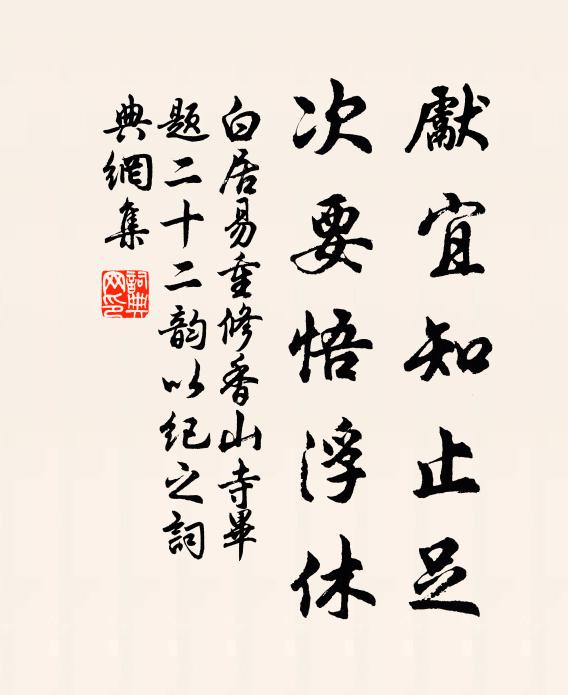 獻宜知止足
次要悟浮休
白居易重修香山寺畢
題二十二韵以紀之詞
典網集
詞典
网印